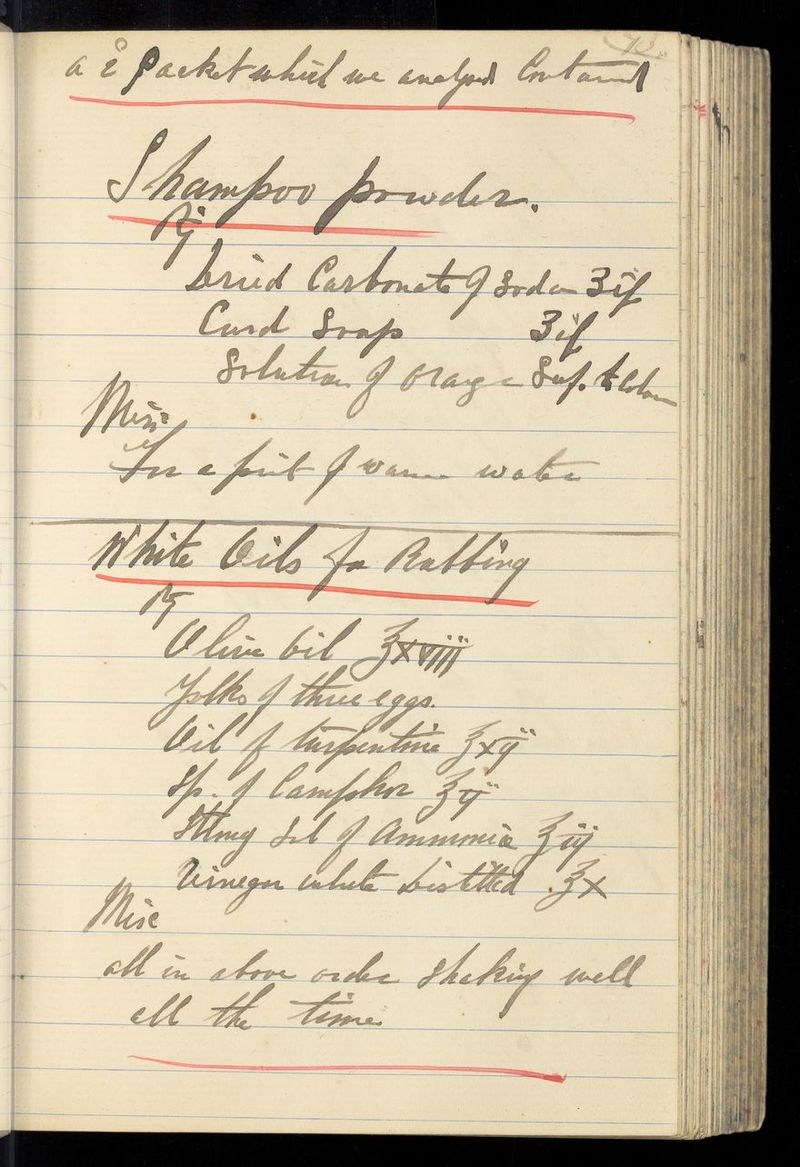 a 2 Packet which we analysed Contained
Shampoo powder.
℞
Dried Carbonate of Soda ʒij
Curd Soap ʒij
Solution of Orange Suf. to Colour
Misce
For a pint of warm water
White Oils for Rubbing
℞
Olive Oil ℥xviiii
Yolks of three eggs.
Oil of turpentine ℥xij
Sp. of Camphor ℥ij
Strong Sol of Ammonia ℥iij
Vinegar white Distilled ℥x
Mise
all in above order shaking well
all the time